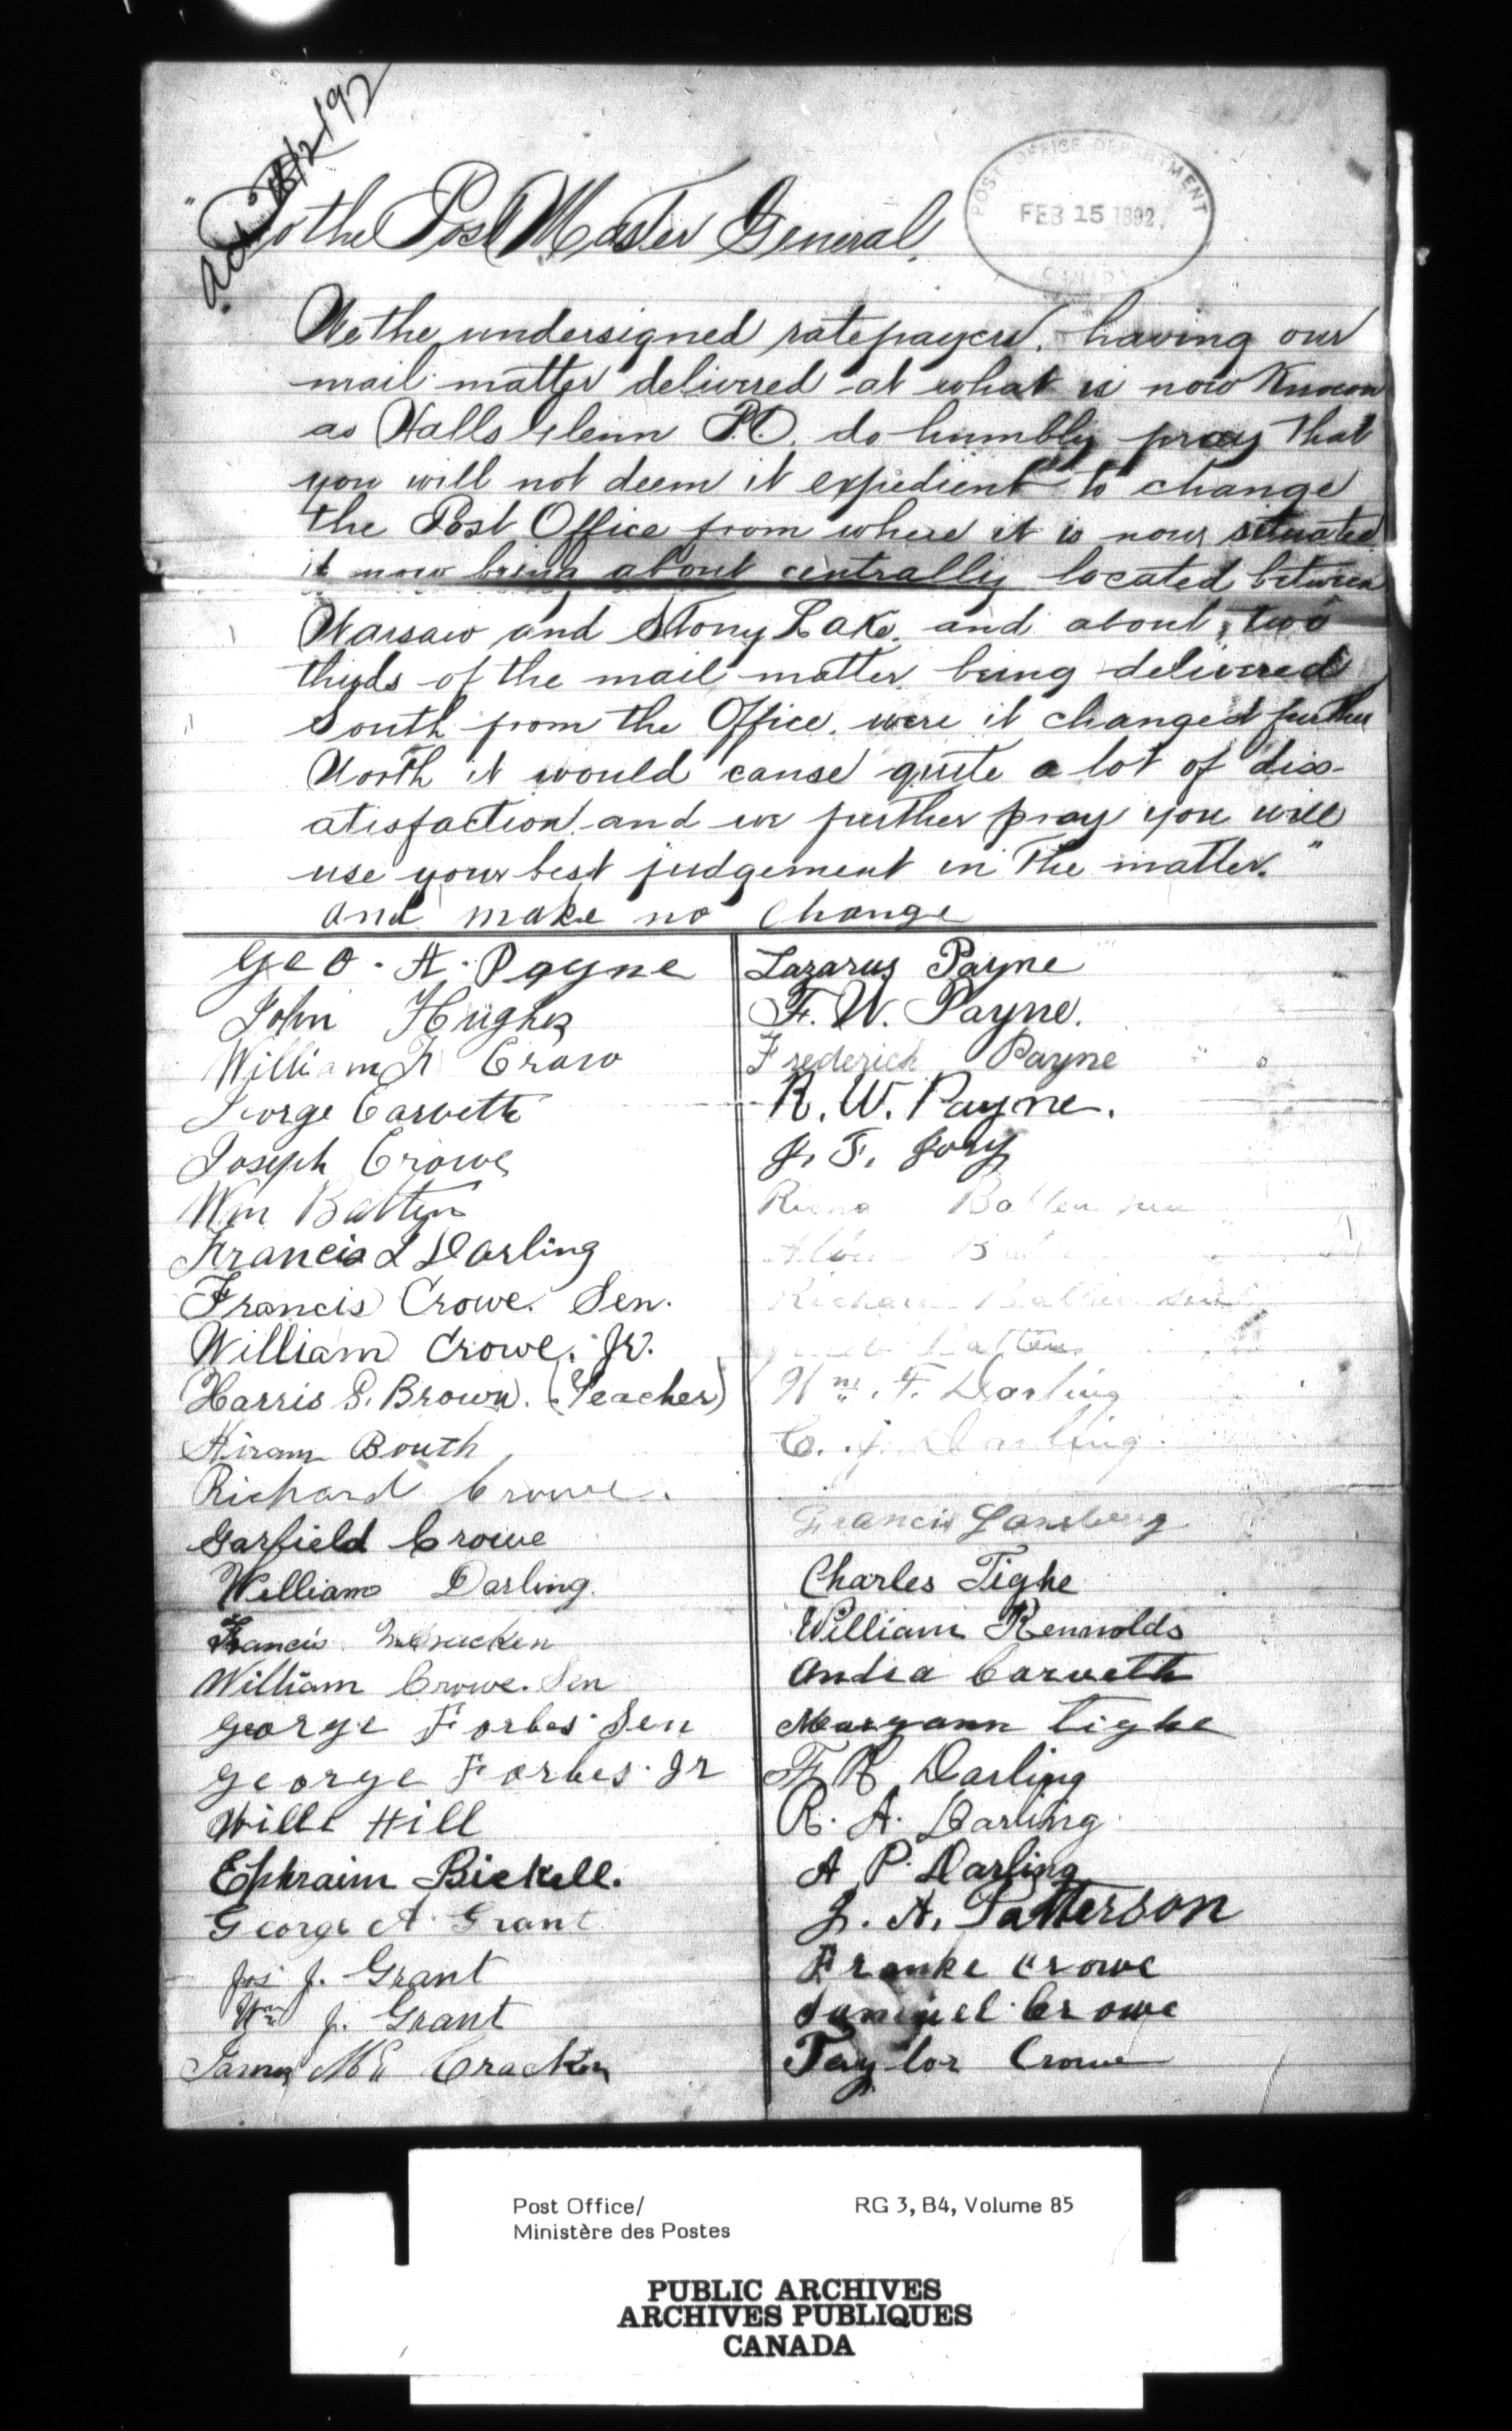 Ack 18/2/92
POST OFFICE DEPARTMENT
FEB 15 1892.
CANADA
"To the Post Master General.
We the undersigned ratepayers. having our
mail matter delivered at what is now Known
as Halls Glenn P.O. do humbly pray that
you will not deem it expedient to change
the Post Office from where it is now situated
it now being about centrally located between
Warsaw and Stony Lake. and about two
thirds of the mail matter being delivered
South from the Office. were it changed further
North it would cause quite a lot of diss-
atisfaction and we further pray you will
use your best judgement in the matter."
and make no change
Geo. A. Payne
John Hughes
William Craw
George Carveth
Joseph Crowe
Wm Batten
Francis L Darling
Francis Crowe. Sen.
William Crowe. Jr.
Harris S. Brown. (Teacher)
Hiram Bouth
Richard Crowe.
Garfield Crowe
William Darling.
Francis McCracken
William Crowe. Sen
George Forbes Sen
George Forbes. Jr
Hill
Ephraim Bickell.
George A. Grant
Jos J. Grant
Wm J. Grant
James Mc Cracken
Lazarus Payne
F. W. Payne.
Frederick Payne
R. W. Payne.
J. F. Jory
Batten
Richard Batten
Batten
Wm. F. Darling
C. J. Darling.
Francis
Charles Tighe
William Rennolds
Carveth
Maryann Tighe
Darling
R. A. Darling
A P. Darling
J. A. Patterson
Franke Crowe
Samuel Crowe
Taylor Crowe
Post Office/ RG 3, B4, Volume 85
Ministère des Postes
PUBLIC ARCHIVES
ARCHIVES PUBLIQUES
CANADA